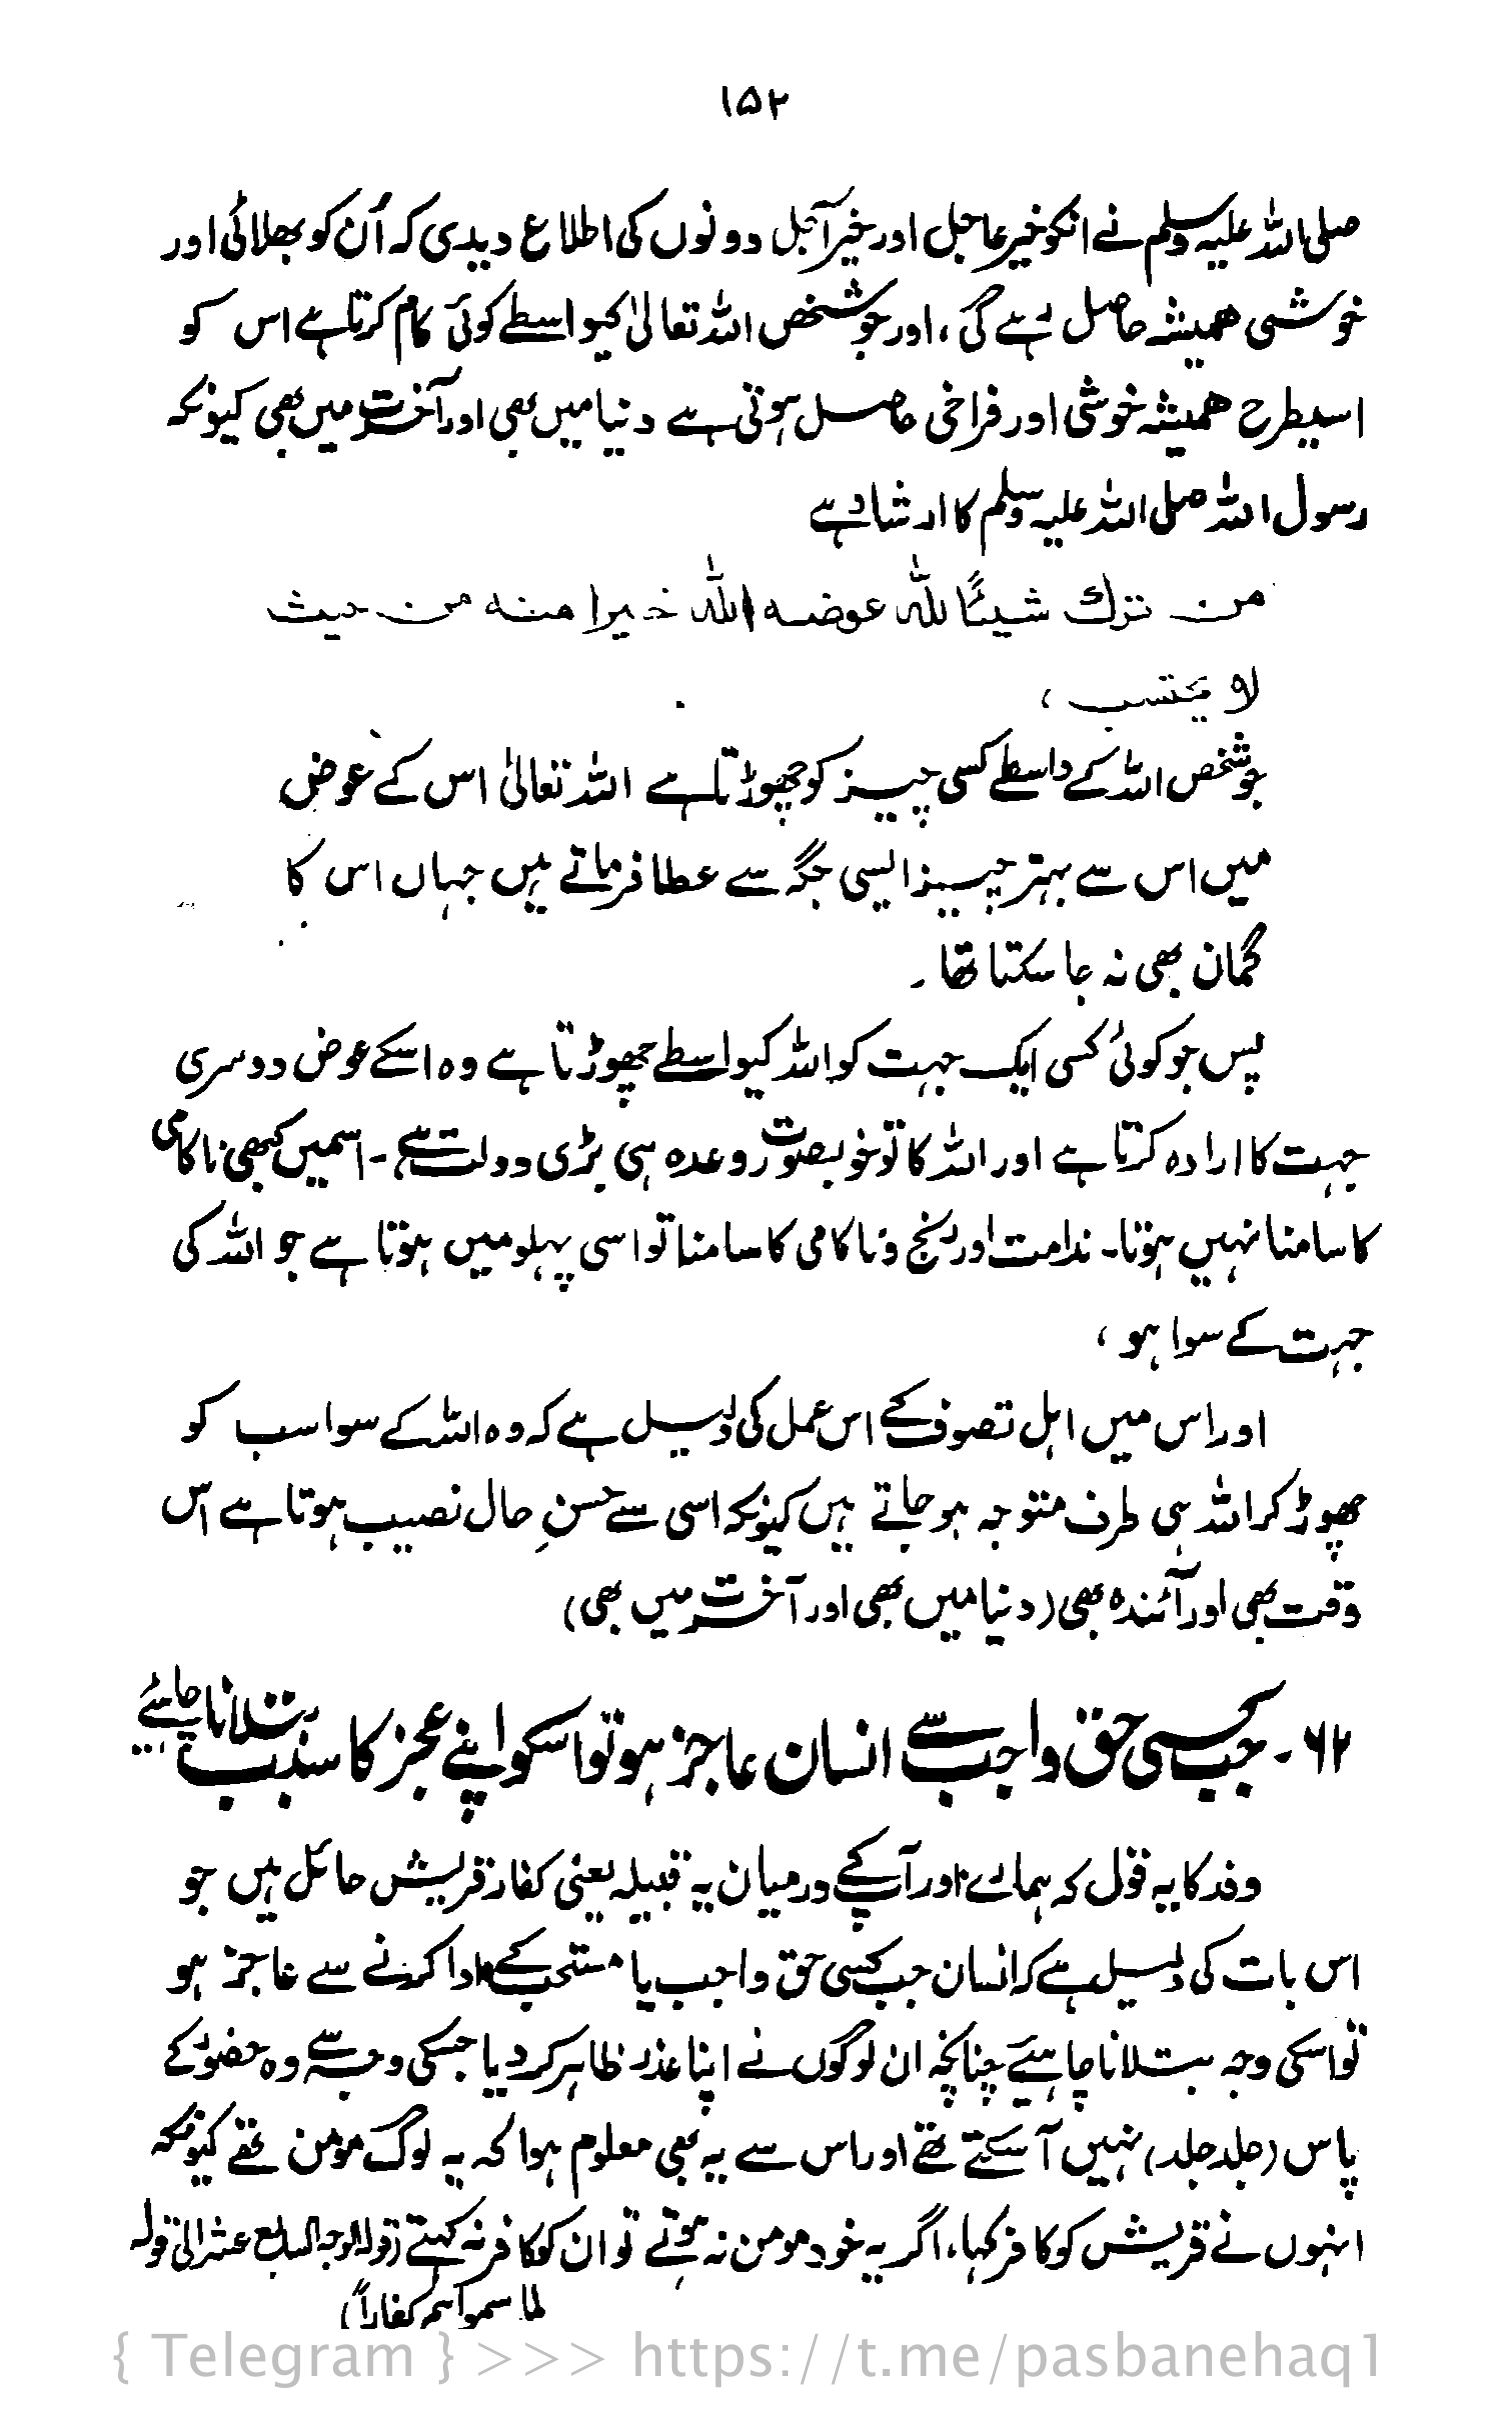 ۱۵۲
صلی اللہ علیہ وسلم نے انکو خیر عاجل اور خیر آجل دونوں کی اطلاع دیدی کہ اُن کو بھلائی اور
خوشی ہمیشہ حاصل رہے گی، اور جو شخص اللہ تعالیٰ کیواسطے کوئی کام کرتا ہے اس کو
اسیطرح ہمیشہ خوشی اور فراخی حاصل ہوتی ہے دنیا میں بھی اور آخرت میں بھی کیونکہ
رسول اللہ صلی اللہ علیہ وسلم کا ارشاد ہے
من ترك شيئًا لله عوضه الله خيرا منه من حيث
لا يحتسب ،
جو شخص اللہ کے واسطے کسی چیز کو چھوڑتا ہے اللہ تعالیٰ اس کے عوض
میں اس سے بہتر چیز ایسی جگہ سے عطا فرماتے ہیں جہاں اس کا
گمان بھی نہ جا سکتا تھا۔
پس جو کوئی کسی ایک جہت کو اللہ کیواسطے چھوڑتا ہے وہ اسکے عوض دوسری
جہت کا ارادہ کرتا ہے اور اللہ کا تو خوبصورت وعدہ ہی بڑی دولت ہے۔ اسمیں کبھی ناکامی
کا سامنا نہیں ہوتا۔ ندامت اور رنج و ناکامی کا سامنا تو اسی پہلو میں ہوتا ہے جو اللہ کی
جہت کے سوا ہو،
اور اس میں اہل تصوف کے اس عمل کی دلیل ہے کہ وہ اللہ کے سوا سب کو
چھوڑ کر اللہ ہی طرف متوجہ ہو جاتے ہیں کیونکہ اسی سے حسنِ حال نصیب ہوتا ہے اس
وقت بھی اور آئندہ بھی (دنیا میں بھی اور آخرت میں بھی)
۶۲۔ جب کسی حق واجب سے انسان عاجز ہو تو اسکو اپنے عجز کا سبب بتلانا چاہئے
وفد کا یہ قول کہ ہمارے اور آپکے درمیان یہ قبیلہ یعنی کفار قریش حائل ہیں جو
اس بات کی دلیل ہے کہ انسان جب کسی حق واجب یا مستحب کے ادا کرنے سے عاجز ہو
تو اسکی وجہ بتلانا چاہیئے چنانچہ ان لوگوں نے اپنا عذر ظاہر کر دیا جسکی وجہ سے وہ حضورؐ کے
پاس (جلد جلد) نہیں آ سکتے تھے اور اس سے یہ بھی معلوم ہوا کہ یہ لوگ مومن تھے کیونکہ
انہوں نے قریش کو کافر کہا، اگر یہ خود مومن نہ ہوتے تو ان کو کافر نہ کہتے (قولہ الوجہ السابع عشر الیٰ قولہ
لما سموا ہم کفاراً)
{ Telegram } >>> https://t.me/pasbanehaq1